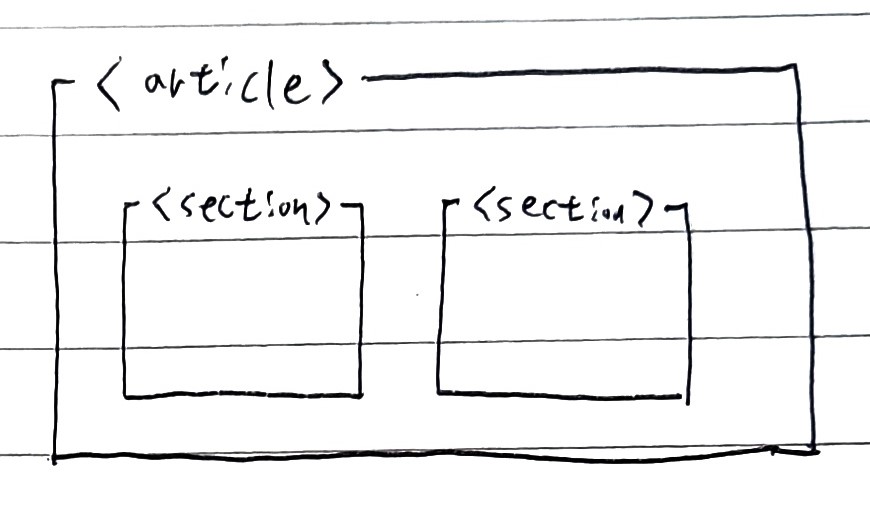 <article>
<section> <section>